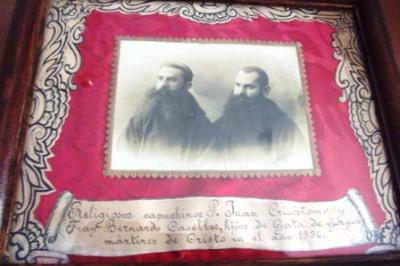 Religiosos capuchinos P. Juan Crisóstomo y
Fray Bernardo Caselles, hijos de Gata de Gorgos
mártires de Cristo en el año 1936.